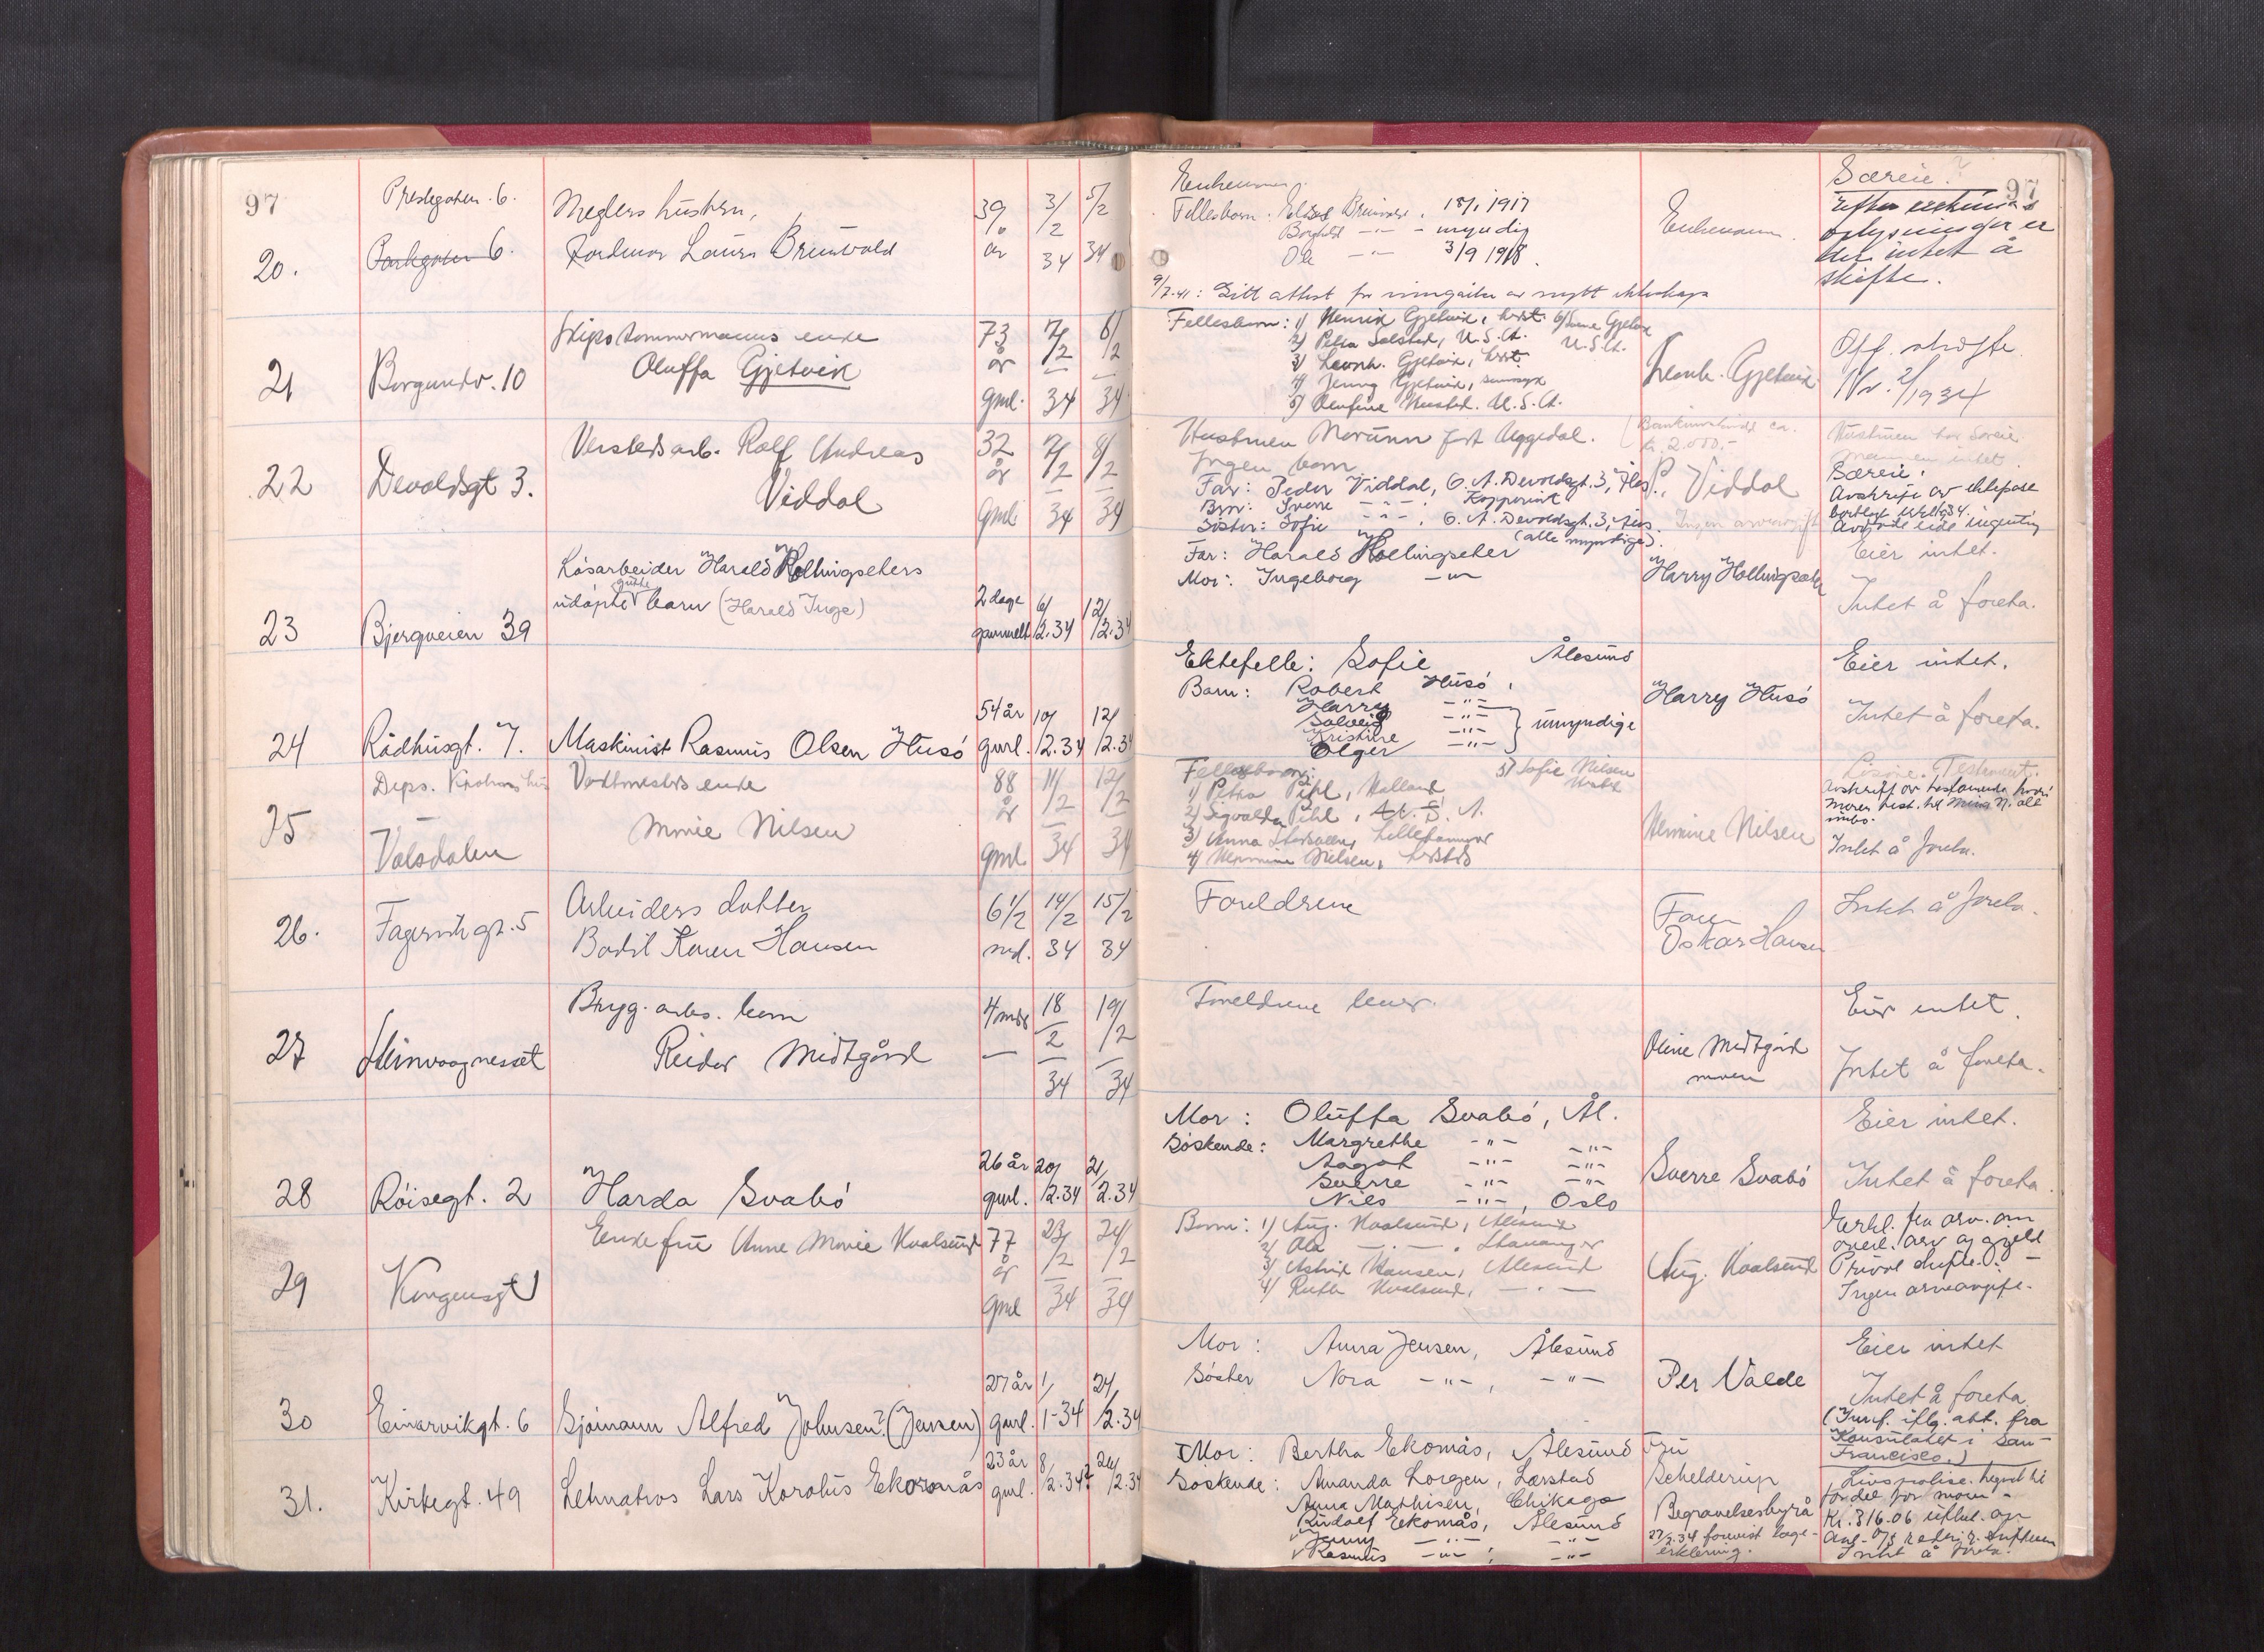 97
97
20.
Prestegaten. 6.
Parkgaten 6.
Meglers hustru,
Laura Brunvold
39 år
3/2 34
5/2 34
Enkemann.
Fellesbarn: 18/1 1917
Borghild -"- - myndig
Ole -"- 3/9 1918.
9/7.41: Gitt attest for inngåelse av nytt ekteskap
Enkemann.
Særeie?
Efter enkemanns
oplysninger er
det intet å
skifte.
21
Borgundv. 10
Skipstømmermanns enke
Oluffa Gjetvik
73 år gml.
7/2 34
8/2 34
Fellesbarn: 1) Henrik Gjetvik, herst. 6)
2) Petra Solstad, U.S.A. U.S.A.
3) Leonh. Gjetvik, herst.
4) Jenny Gjetvik, sinnsyk
5) Olufine Hustad. U.S.A.
Leonh. Gjetvik
Off. skifte
Nr. 2/1934
22
Devoldsgt 3.
Verkstedsarb. Rolf Andreas
Viddal
32 år gml
7/2 34
8/2 34
Hustruen Morunn født Aggedal.
Ingen barn
Far: Peder Viddal, O. A. Devoldsgt. 3, Åles.
Bror: Sverre -"- , Koppervik
Søster: Sofie -"- , O. A. Devoldsgt. 3, Åles.
(alle myndige).
kr. 2.000.-
P. Viddal
Ingen arveavgift
Hustruen har særeie
mannen intet.
Særeie.
Avskrift av ektepakt
Avdøde eide ingenting
23
Bjergveien 39
Løsarbeider Harald Hollingseters
udøpte gutte barn (Harald Inge)
2 dage gammelt
6/2.34
12/2.34
Far: Harald Hollingseter
Mor: Ingeborg -"-
Harry Hollingsæter
Eier intet.
Intet å foreta.
24
Rådhusgt. 7.
Maskinist Rasmus Olsen Husø
54 år gml.
10/2.34
12/2.34
Ektefelle: Sofie Ålesund
Barn: Robert Husø,
Harry -"-
Solveig -"-
Kristine -"-
Olger -"-
umyndige
Harry Husø
Eier intet.
Intet å foreta.
25
Deps. Krohns hus
Volsdalen
Vaktmesters enke
Marie Nilsen
88 år gml
11/2 34
12/2 34
Fellesbarn:
1) Petra Pihl, Halland
2) Sigvalda Pihl, U.S.A.
3) Anna, Lillehammer
4) Hermine Nilsen, herst.
5) Sofie Nilsen
Hermine Nilsen
Testament.
Avskrift av testamente hvori
moren test. til Mina N. alt
innbo.
Intet å foreta.
26.
Fagervikgt. 5
Arbeiders datter
Bodil Karen Hansen
6 1/2 md.
14/2 34
15/2 34
Foreldrene
Faren
Oskar Hansen
Intet å foreta.
27
Steinvaagneset
Brygg. arbs. barn
Reidar Midtgård
4 mdr
18/2 34
19/2 34
Foreldrene lever.
Oline Midtgård
moren
Eier intet.
Intet å foreta.
28
Røisegt. 2
Harda Svabø
26 år gml.
20/2.34
21/2.34
Mor: Oluffa Svabø, Ål.
Søskende: Margrethe -"- -"-
Aagot -"- -"-
Sverre -"- -"-
Nils -"-, Oslo
Sverre Svabø
Eier intet.
Intet å foreta.
29
Kongensgt
Enkefru Anne Marie Kvalsund
77 år gml
23/2 34
24/2 34
Barn: 1) Aug. Kvalsund, Ålesund
2) Ola -"-, Stavanger
3) Astrid Hansen, Ålesund
4) Ruth Kvalsund, -"-
Aug. Kvalsund
Erkl. fra arv. om
overt. arv og gjeld
Privat skifte. -
Ingen arveavgift.
30
Einarvikgt. 6
Sjømann Alfred Johnsen? (Jensen)
27 år gml.
1/1-34
24/2.34
Mor: Anna Jensen, Ålesund
Søster Nora -"-, -"-
Per Valde
Eier intet
Intet å foreta
(Innf. iflg. att. fra
Konsulatet i San-
Francisco.)
31.
Kirkegt. 49
Letmatros Lars Karolus Ekornås
23 år gml.
8/2.34?
26/2.34
Mor: Bertha Ekornås, Ålesund
Søskende: Amanda Longen, Larstad
Anna Mathisen, Chikago
Rudolf Ekornås, Ålesund
Jenny -"- -"-
Rasmus -"- , -"-
Fru
Schelderup
Begravelsesbyrå
27/2.34 forevist læge-
erklæring.
Livspolise. tegnet til
fordel for moren -
Kr. 316.06 utbet. av
Intet å foreta.